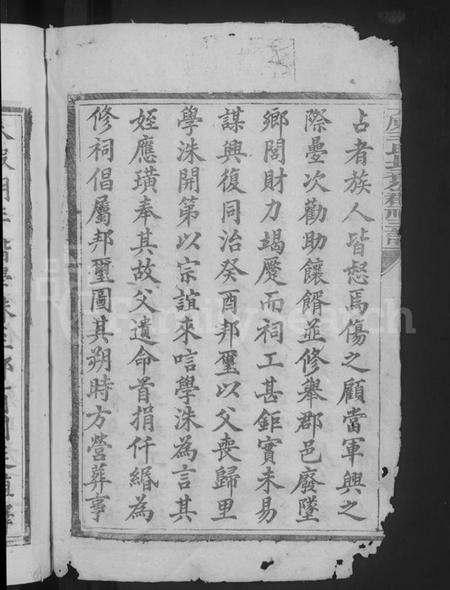 占者族人皆怒焉傷之顧當軍興之
際疊次勸助饟餫並修舉郡邑廢墜
鄉閭財力竭蹷而祠工甚鉅實未易
謀興復同治癸酉邦璽以父喪歸里
學洙開第以宗誼來唁學洙為言其
姪應璜奉其故父遺命首捐仟緡為
修祠倡屬邦璽圖其朔時方營葬事
FamilySearch